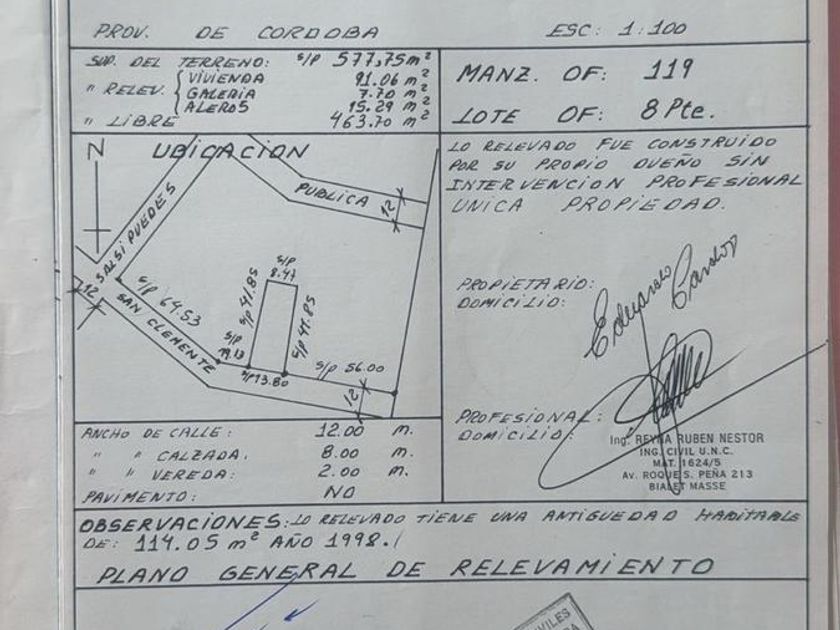 PROV. DE CORDOBA ESC: 1:100
SUP. DEL TERRENO: S/P 577,75m²
" RELEV. { VIVIENDA 91.06 m²
GALERIA 7.70 m²
ALEROS 15.29 m²
" LIBRE 463.70 m²
MANZ. OF: 119
LOTE OF: 8 Pte.
N
UBICACION
SALSIPUEDES
PUBLICA
12
S/P 8.47
S/P 41.85
S/P 41.85
12
S/P 64.53
SAN CLEMENTE
S/P
S/P 13.80
S/P 56.00
12
LO RELEVADO FUE CONSTRUIDO
POR SU PROPIO DUEÑO SIN
INTERVENCION PROFESIONAL
UNICA PROPIEDAD.
PROPIETARIO:
DOMICILIO:
Eduardo
PROFESIONAL:
DOMICILIO:
Ing. REYNA RUBEN NESTOR
ING. CIVIL U.N.C.
MAT. 1624/5
Av. ROQUE S. PEÑA 213
BIALET MASSE
ANCHO DE CALLE: 12.00 m.
" " CALZADA: 8.00 m.
" " VEREDA: 2.00 m.
PAVIMENTO: NO
OBSERVACIONES: LO RELEVADO TIENE UNA ANTIGUEDAD HABITABLE
DE: 114.05 m² AÑO 1998.
PLANO GENERAL DE RELEVAMIENTO
CIVILES